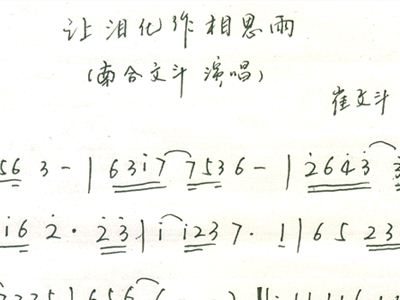 让泪化作相思雨
(南合文斗 演唱)
崔文斗
56 3 - | 6 3 i 7 7 5 3 6 - | 2 6 4 3 3
i 6 2 · 2 3 | i i 2 3 7 · 1 | 6 5 2 3